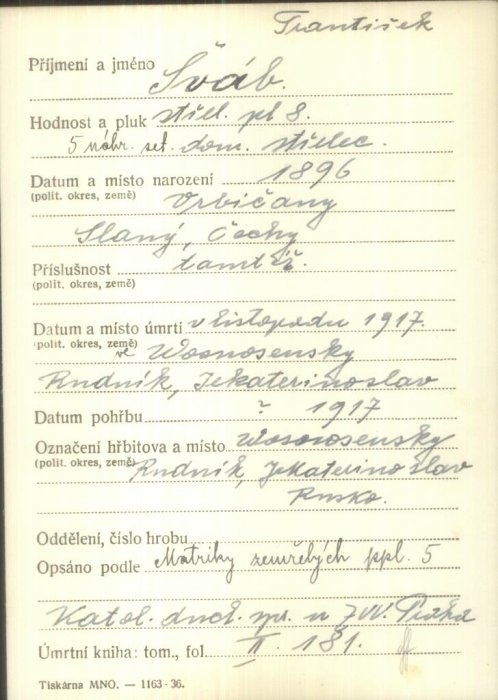 František
Příjmení a jméno Šváb.
Hodnost a pluk střel. pl 8.
5 náhr. set. dom. střelec.
Datum a místo narození 1896
(polit. okres, země) Vrbičany
Slaný, Čechy
Příslušnost tamtéž.
(polit. okres, země)
Datum a místo úmrtí v listopadu 1917.
(polit. okres, země) ve Wosnosensky
Rudník, Jekaterinoslav
Datum pohřbu ? 1917
Označení hřbitova a místo Wosnosensky
(polit. okres, země) Rudník, Jekaterinoslav
Rusko.
Oddělení, číslo hrobu
Opsáno podle Matriky zemřelých ppl. 5
Katol. duch. spr. u ZVV. Praha
Úmrtní kniha: tom., fol. II. 181.
Tiskárna MNO. — 1163-36.